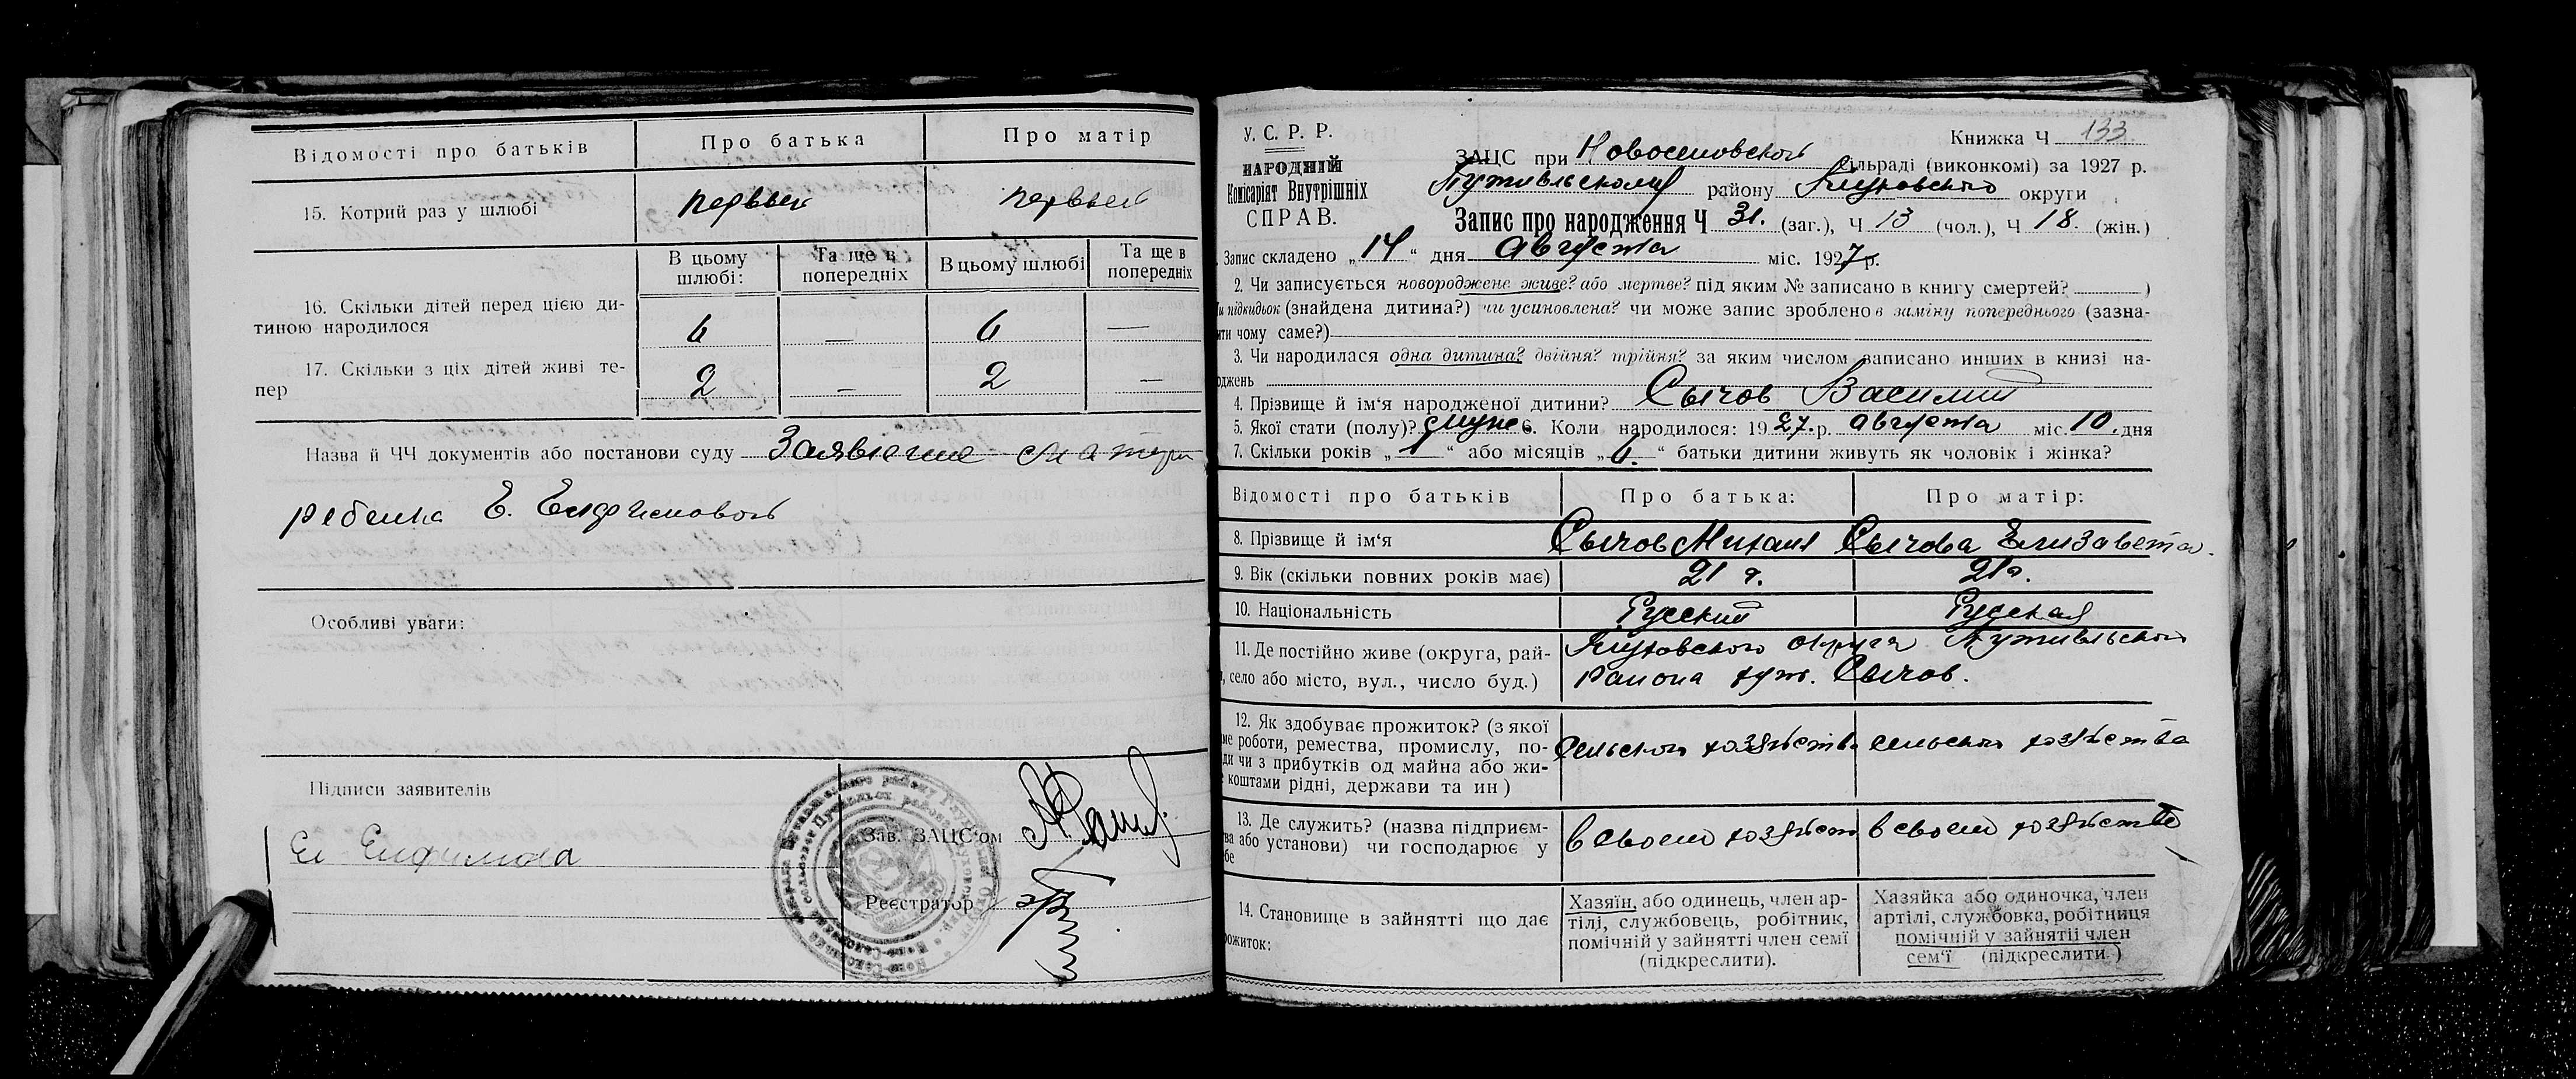 Відомості про батьків Про батька Про матір
15. Котрий раз у шлюбі первый первый
В цьому шлюбі: Та ще в попередніх В цьому шлюбі Та ще в попередніх
16. Скільки дітей перед цією ди-
тиною народилося 6 — 6 —
17. Скільки з ціх дітей живі те-
пер 2 — 2 —
Назва й ЧЧ документів або постанови суду Заявление матери
ребенка Е. Елфимовой
Особливі уваги:
Підписи заявителів
Ел Елфимова
Зав. ЗАЦС'ом
Реєстратор
У. С. Р. Р.
НАРОДНІЙ
Комісаріят Внутрішніх
СПРАВ.
Книжка Ч 133
ЗАЦС при Новоселовской сільраді (виконкомі) за 1927 р.
Путивльского району Глуховского округи
Запис про народження Ч 31. (заг.), Ч 13 (чол.), Ч 18. (жін.)
Запис складено „14“ дня Августа міс. 1927 р.
2. Чи записується новороджене живе? або мертве? під яким № записано в книгу смертей? )
чи підкидьок (знайдена дитина?) чи усиновлена? чи може запис зроблено в заміну попереднього (зазна-
ити чому саме?)
3. Чи народилася одна дитина? двійня? трійня? за яким числом записано инших в книзі на-
роджень
4. Прізвище й ім'я народженої дитини? Сычов Василий
5. Якої стати (полу)? муж 6. Коли народилося: 1927. р. Августа міс. 10. дня
7. Скільки років „1“ або місяців „6.“ батьки дитини живуть як чоловік і жінка?
Відомості про батьків Про батька: Про матір:
8. Прізвище й ім'я Сычов Михаил Сычова Елизавета.
9. Вік (скільки повних років має) 21 г. 21 г.
10. Національність Русский Русская
11. Де постійно живе (округа, рай- Глуховского округа Путивльского
, село або місто, вул., число буд.) района хут. Сычов.
12. Як здобуває прожиток? (з якої
ме роботи, ремества, промислу, по- Сельского хозяйства сельского хозяйства
ди чи з прибутків од майна або жи-
коштами рідні, держави та ин)
13. Де служить? (назва підприєм- в своем хозяйств в своем хозяйстве
ва або установи) чи господарює у
бе
14. Становище в зайнятті що дає
рожиток:
Хазяїн, або одинець, член ар-
тілі, службовець, робітник,
помічній у зайнятті член семї
(підкреслити).
Хазяйка або одиночка, член
артілі, службовка, робітниця
помічній у зайнятії член
сем'ї (підкреслити.)